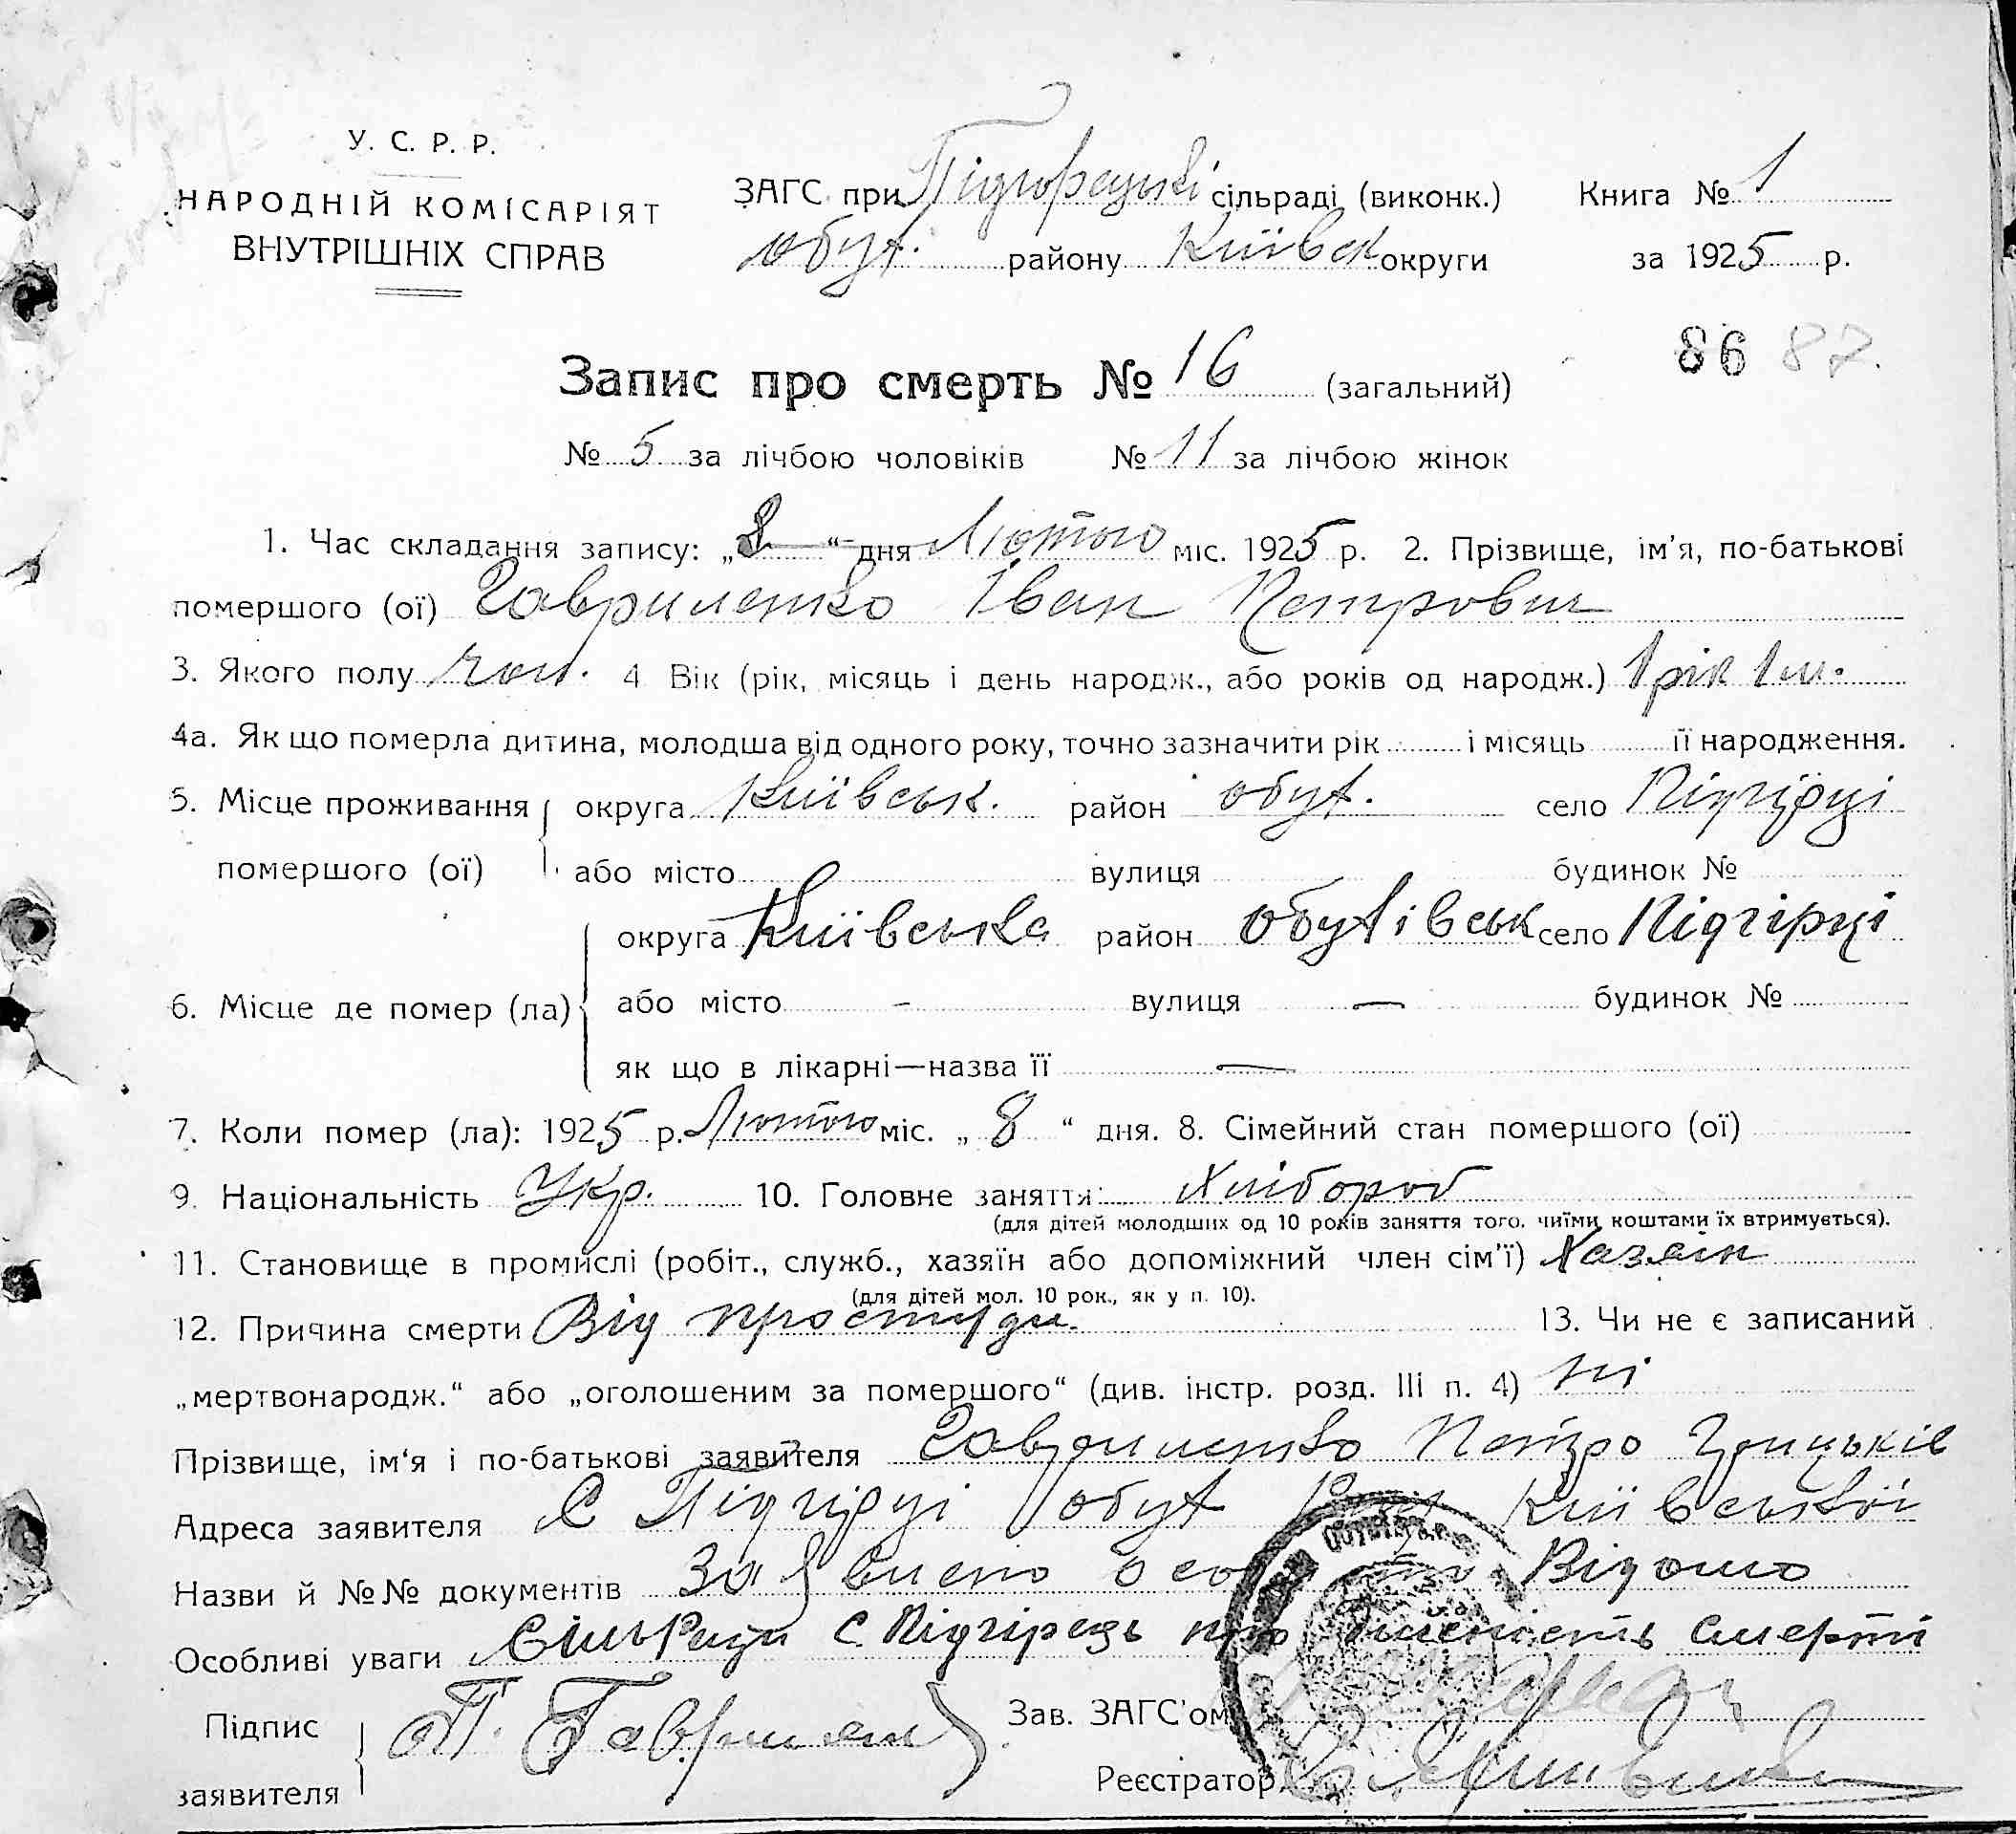 У. С. Р. Р.
НАРОДНІЙ КОМІСАРІЯТ
ВНУТРІШНІХ СПРАВ
ЗАГС при Підгорецькі сільраді (виконк.) Книга № 1
обух. району Київськ округи за 1925 р.
86 87.
Запис про смерть № 16 (загальний)
№ 5 за лічбою чоловіків № 11 за лічбою жінок
1. Час складання запису: „8“ дня Лютого міс. 1925 р. 2. Прізвище, ім'я, по-батькові
помершого (ої) Гавриленко Іван Петрович
3. Якого полу чол. 4 Вік (рік, місяць і день народж., або років од народж.) 1 рік 1 м.
4а. Як що померла дитина, молодша від одного року, точно зазначити рік і місяць її народження.
5. Місце проживання округа Київськ. район обух. село Підгірці
помершого (ої) або місто вулиця будинок №
округа Київська район Обухівськ село Підгірці
6. Місце де помер (ла) або місто - вулиця — будинок №
як що в лікарні—назва її —
7. Коли помер (ла): 1925 р. Лютого міс. „8“ дня. 8. Сімейний стан помершого (ої)
9. Національність Укр. 10. Головне заняття: Хлібороб
(для дітей молодших од 10 років заняття того, чиїми коштами їх втримується).
11. Становище в промислі (робіт., служб., хазяїн або допоміжний член сім'ї) Хазяін
(для дітей мол. 10 рок., як у п. 10).
12. Причина смерти Від простуди. 13. Чи не є записаний
„мертвонародж.“ або „оголошеним за помершого“ (див. інстр. розд. III п. 4) ні
Прізвище, ім'я і по-батькові заявителя Гавриленко Петро Грицьків
Адреса заявителя С Підгірці обух Київської
Назви й №№ документів Заявлено Відомо
Особливі уваги Сільради с. Підгірець про смерті
Підпис Т. Гаврилен Зав. ЗАГС'ом
заявителя Реєстратор